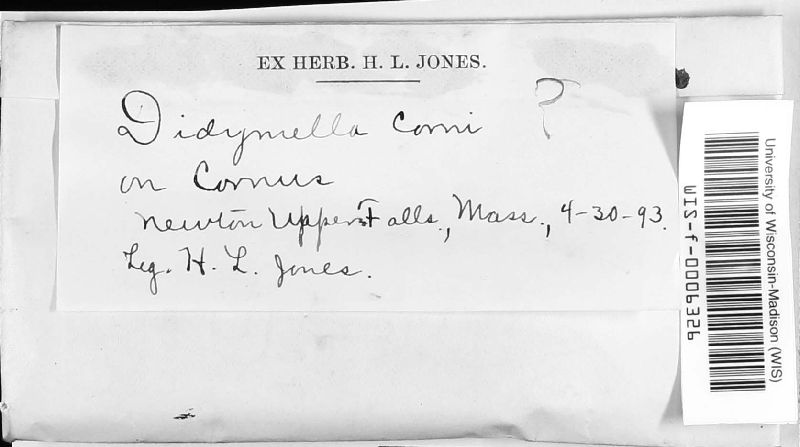 EX HERB. H. L. JONES.
Didymella Corni ?
on Cornus
Newton Upper Falls, Mass., 4-30-93.
Leg. H. L. Jones.
University of Wisconsin-Madison (WIS)
WIS-f-0006326